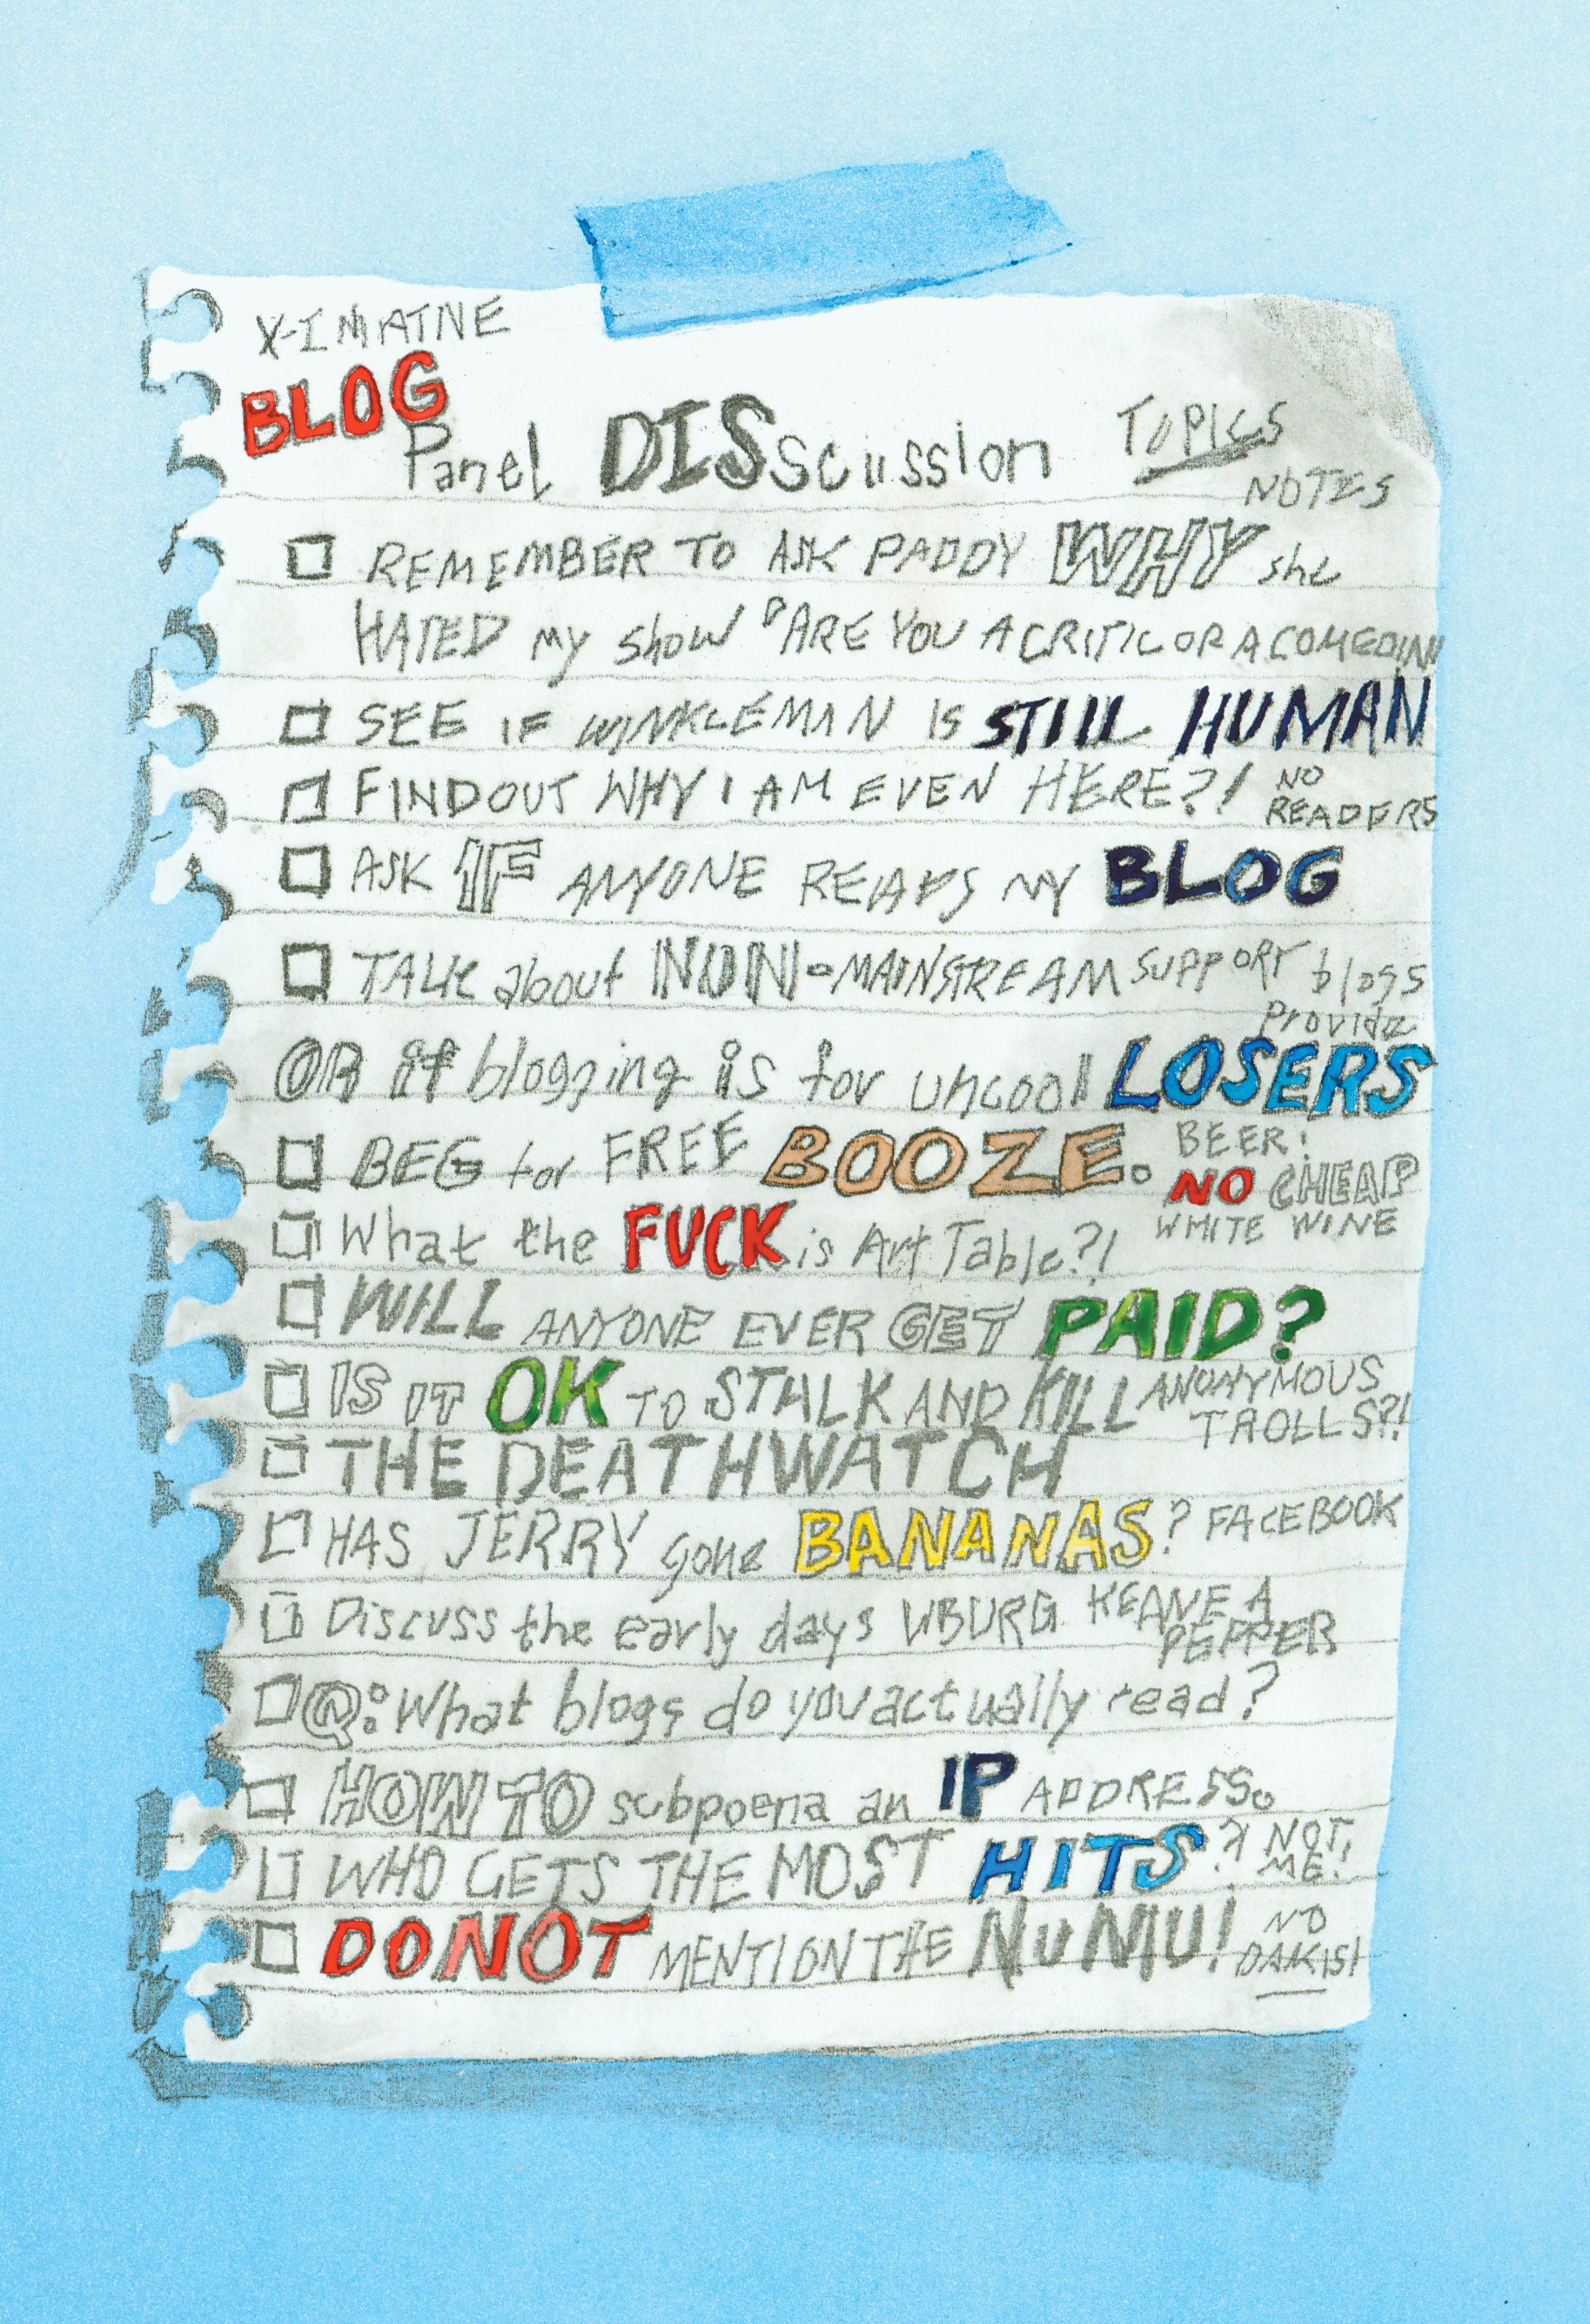 X-INMATNE
BLOG
Panel DISscussion TOPICS
NOTES
REMEMBER TO ASK PADDY WHY she
HATED my show "ARE YOU A CRITIC OR A COMEDIAN
SEE IF WINKLEMAN IS STILL HUMAN
FIND OUT WHY I AM EVEN HERE?! NO
READERS
ASK IF ANYONE READS MY BLOG
TALK about NON-MAINSTREAM SUPPORT blogs
Provide
OR if blogging is for uncool LOSERS
BEG for FREE BOOZE. BEER!
NO CHEAP
WHITE WINE
What the FUCK is Art Table?!
WILL ANYONE EVER GET PAID?
IS IT OK TO STALK AND KILL ANONYMOUS
TROLLS?!
THE DEATHWATCH
HAS JERRY gone BANANAS? FACEBOOK
Discuss the early days WBURG. KEANE A
PEPPER
Q: What blogs do you actually read?
HOW TO subpoena an IP ADDRESS.
WHO GETS THE MOST HITS? NOT
ME!
DO NOT MENTION THE NuMU! NO
DAKIS!